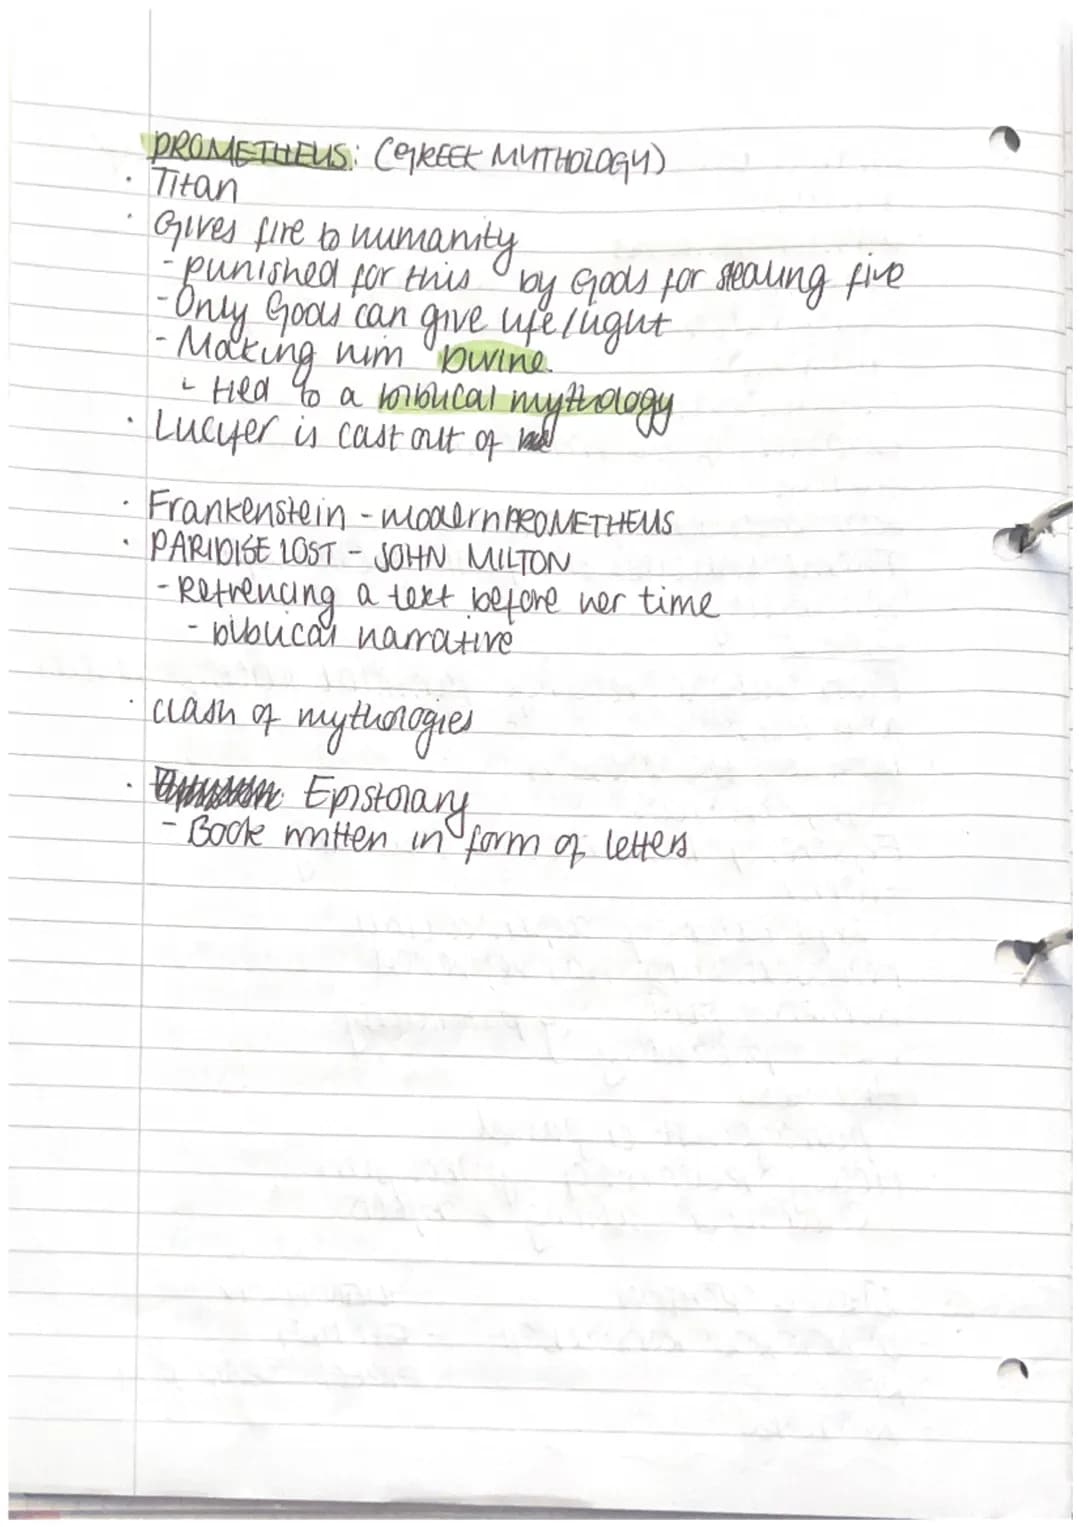 PROMETHEUS: (GREEK MYTHOLOGY)
· Titan
· Gives fire to humanity
- punished for this by Gods for stealing fire
- Only Gods can give life/light
- Making him Divine.
↳ tied to a biblical mythology
· Lucifer is cast out of
· Frankenstein - modern PROMETHEUS
· PARIDISE LOST - JOHN MILTON
- Refrencing a text before her time
- biblical narrative
· clash of mythologies
· Epistolary
- Book written in form of letters